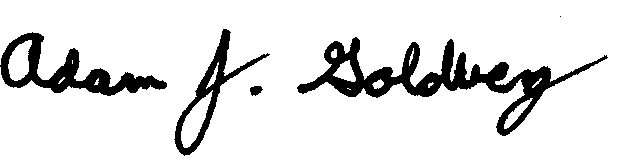 Adam J. Goldberg